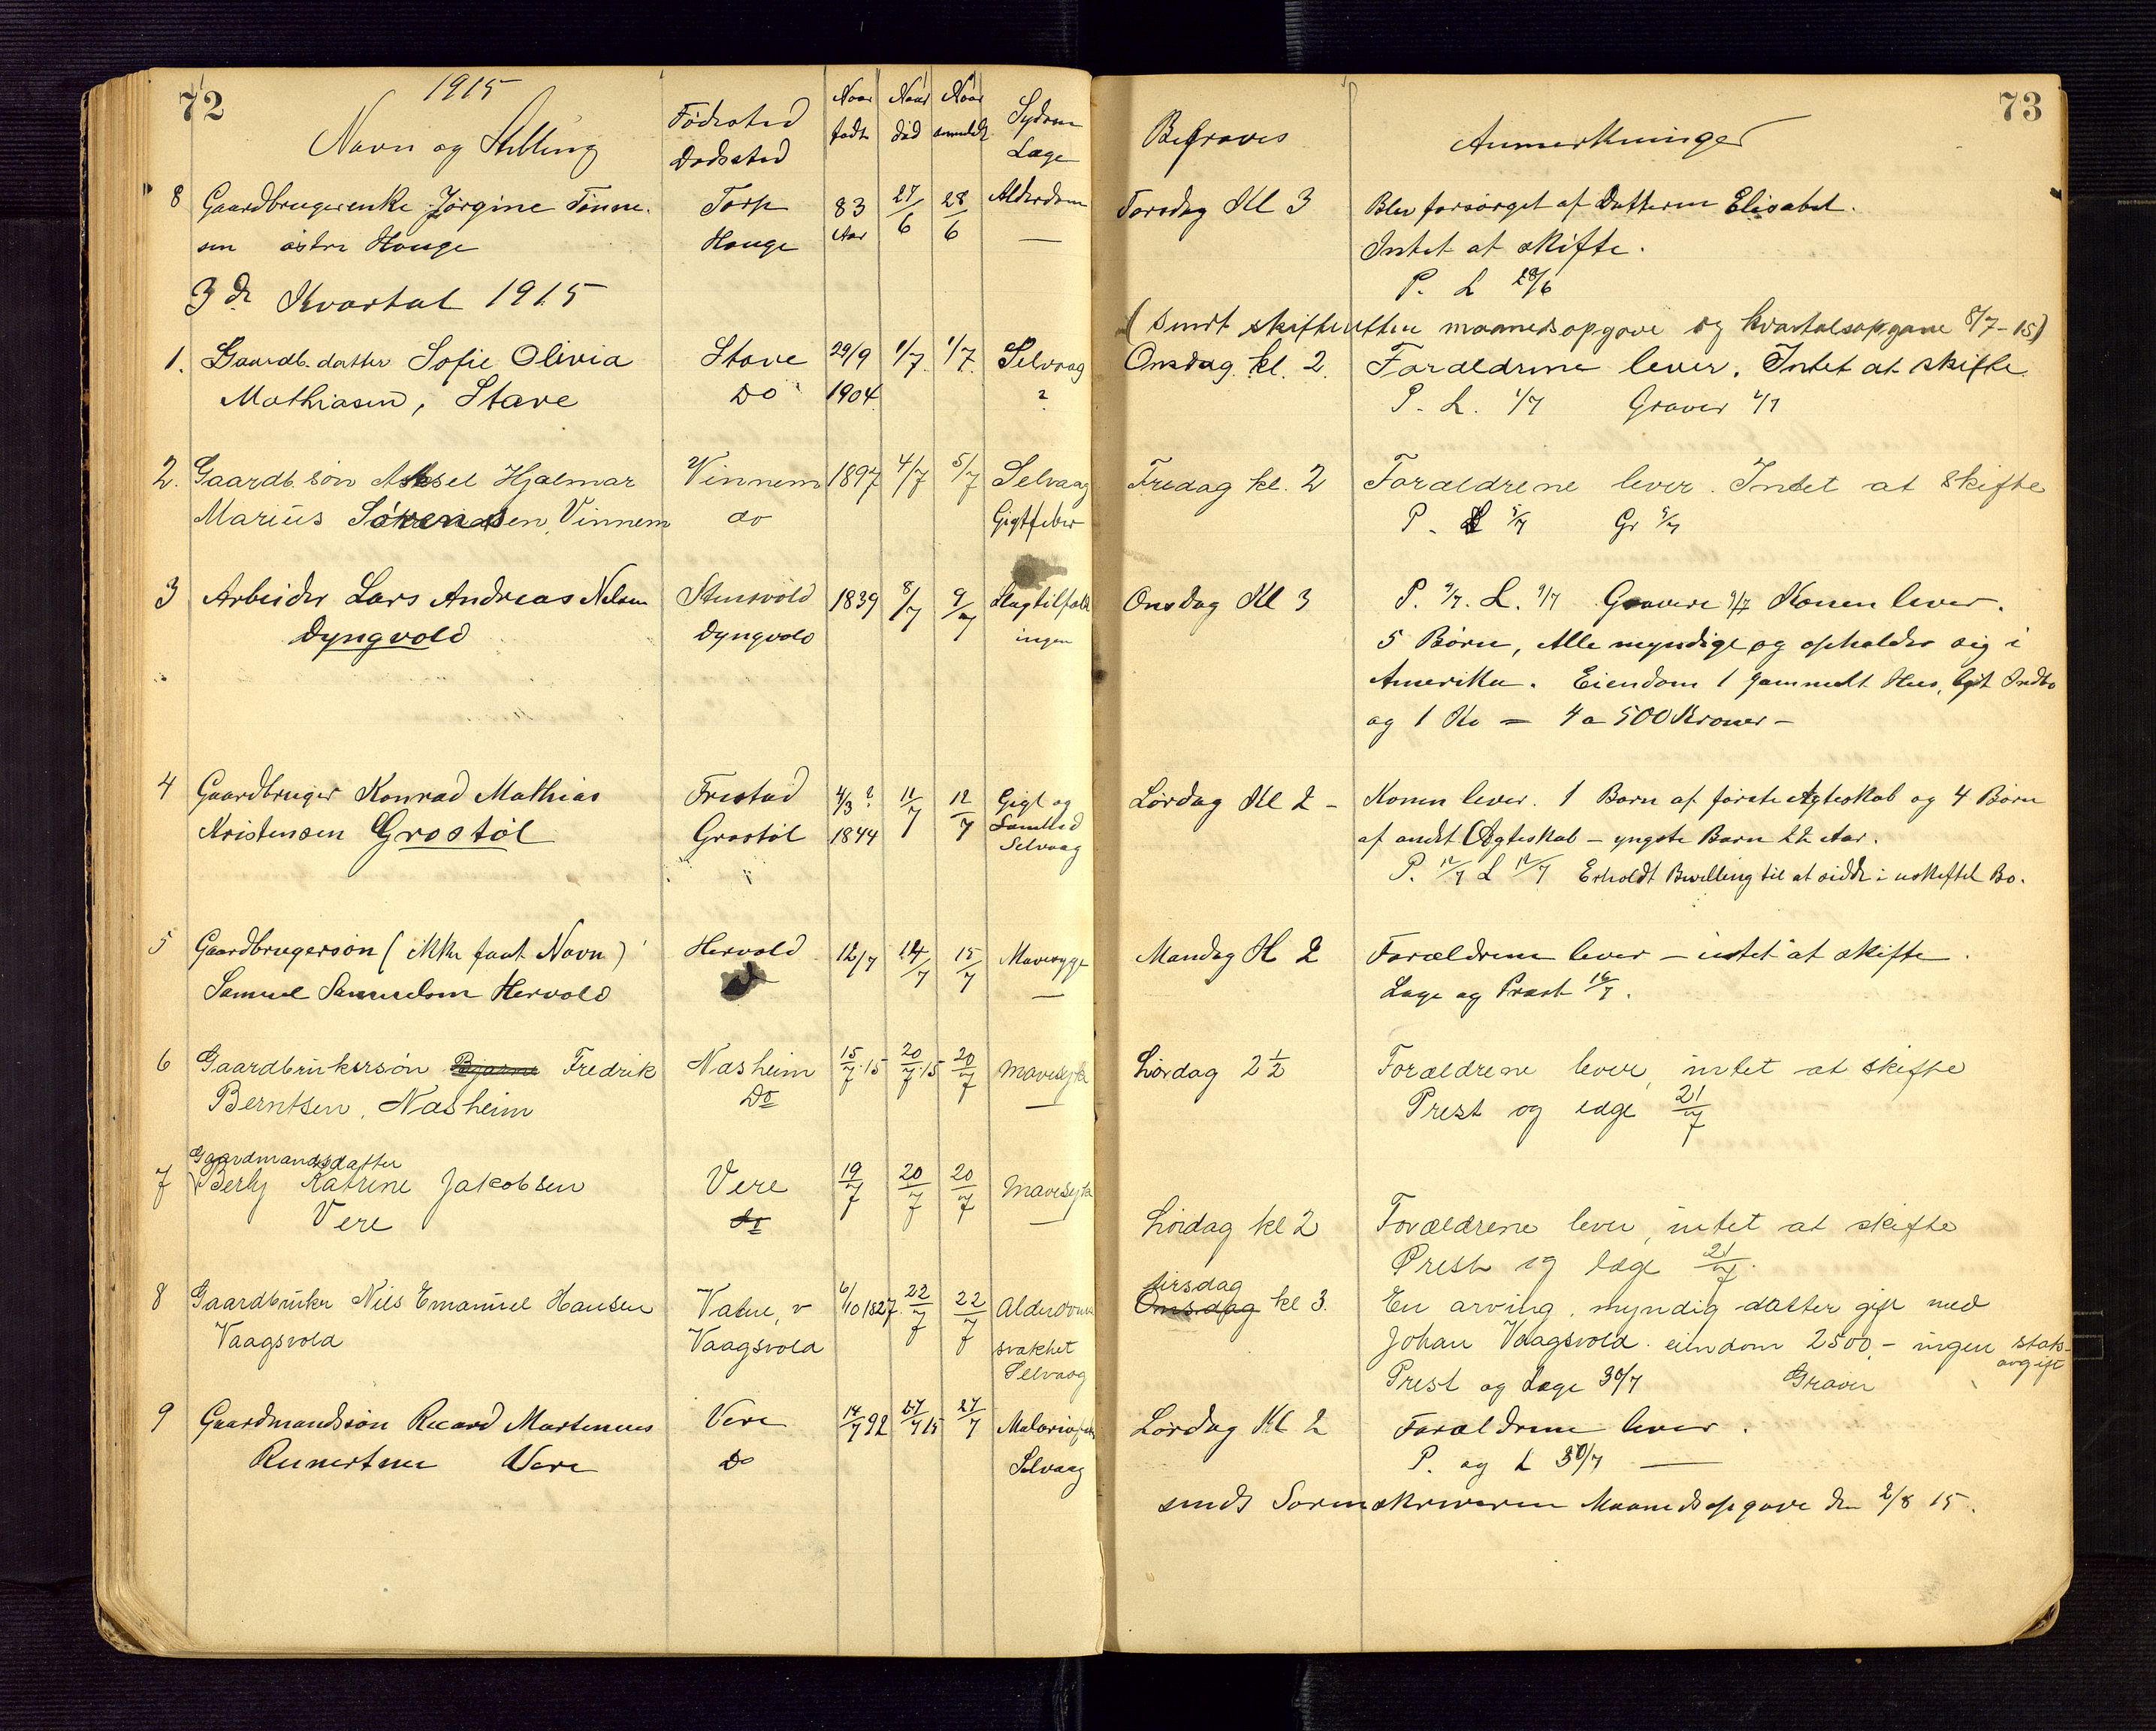 72
1915
Navn og Stilling
Födested
Dødssted
Naar født
Naar død
Naar anmeldt
Sygdom
Læge
8 Gaardbrugerenke Jörgine Tönne-
sen östre Houge
Torp
Houge
83 Aar
27/6
28/6
Alderdom
—
3de Kvartal 1915
1. Gaardb. datter Sofie Olivia
Mathiasen, Stave
Stave
Do
29/9 1904
1/7
1/7
Selvaag
?
2. Gaardb. sön Aksel Hjalmar
Marius Sörensen, Vinnem
Vinnem
do
1897
4/7
5/7
Selvaag
Gigtfeber
3 Arbeider Lars Andreas Nelsen
Dyngvold
Stensvold
Dyngvold
1839
8/7
9/7
Slagtilfæld
ingen
4 Gaardbruger Konrad Mathias
Kristensen Grostöl
Frestad
Grostöl
4/3 ?
1844
11/7
12/7
Gigt og
Selvaag
5 Gaardbrugersön (ikke faat Navn)
Samuel Samuelsen Hervold
Hervold
12/7
14/7
15/7
Mavesyge
—
6 Gaardbrukersön Bjarne Fredrik
Berntsen, Nasheim
Nasheim
Do
15/7 15
20/7 15
20/7
Mavesyke
—
7 Gaardmandsdatter
Berly Katrine Jakobsen
Vere
Vere
do
19/7
20/7
20/7
Mavesyke
—
8 Gaardbruker Nils Emanuel Hansen
Vaagsvold
Vaagsvold
6/10 1827
22/7
22/7
Alderdoms
svakhet
Selvaag
9 Gaardmandssön Recard Martenius
Reinertsen Vere
Vere
Do
14/7 92
27/7 15
27/7
Malariafeber
Selvaag
73
Begraves
Anmerkninger
Torsdag Kl 3
Blev forsörget af Datteren Elisabet.
Intet at skifte.
P. L 28/6
(Sendt skifteretten maanedsopgave og kvartalsopgave 8/7-15)
Onsdag kl. 2.
Forældrene lever. Intet at skifte
P. L. 1/7 Graver 1/7
Fredag kl. 2
Forældrene lever. Intet at skifte
P. L 5/7 Gr 5/7
Onsdag Kl 3
P. 9/7. L. 9/7 Gravere 9/7 Konen lever.
5 Börn, Alle myndige og opholder sig i
Amerika. Eiendom 1 gammelt Hus, lidt Indbo
og 1 Ko = 4 a 500 Kroner –
Lördag Kl 2 –
Konen lever. 1 Barn af förste Ægteskab og 4 Börn
af andet Ægteskab – yngste Barn 22 Aar.
P. 12/7 L 12/7 Erholdt Bevilling til at sidde i uskiftet Bo.
Mandag Kl 2
Forældrene lever – intet at skifte.
Læge og Præst 16/7.
Lördag 2 1/2
Forældrene lever, intet at skifte
Prest og læge 21/7
Lördag kl 2
Forældrene lever, intet at skifte
Prest og læge 21/7.
tirsdag
Onsdag kl 3.
En arving, myndig datter gift med
Johan Vaagsvold. eiendom 2500,- ingen stats-
avgift
Prest og Læge 30/7 Graver
Lördag Kl 2
Forældrene lever.
P. og L 30/7 —
sendt Sorenskriveren Maanedsopgave den 2/8 15.